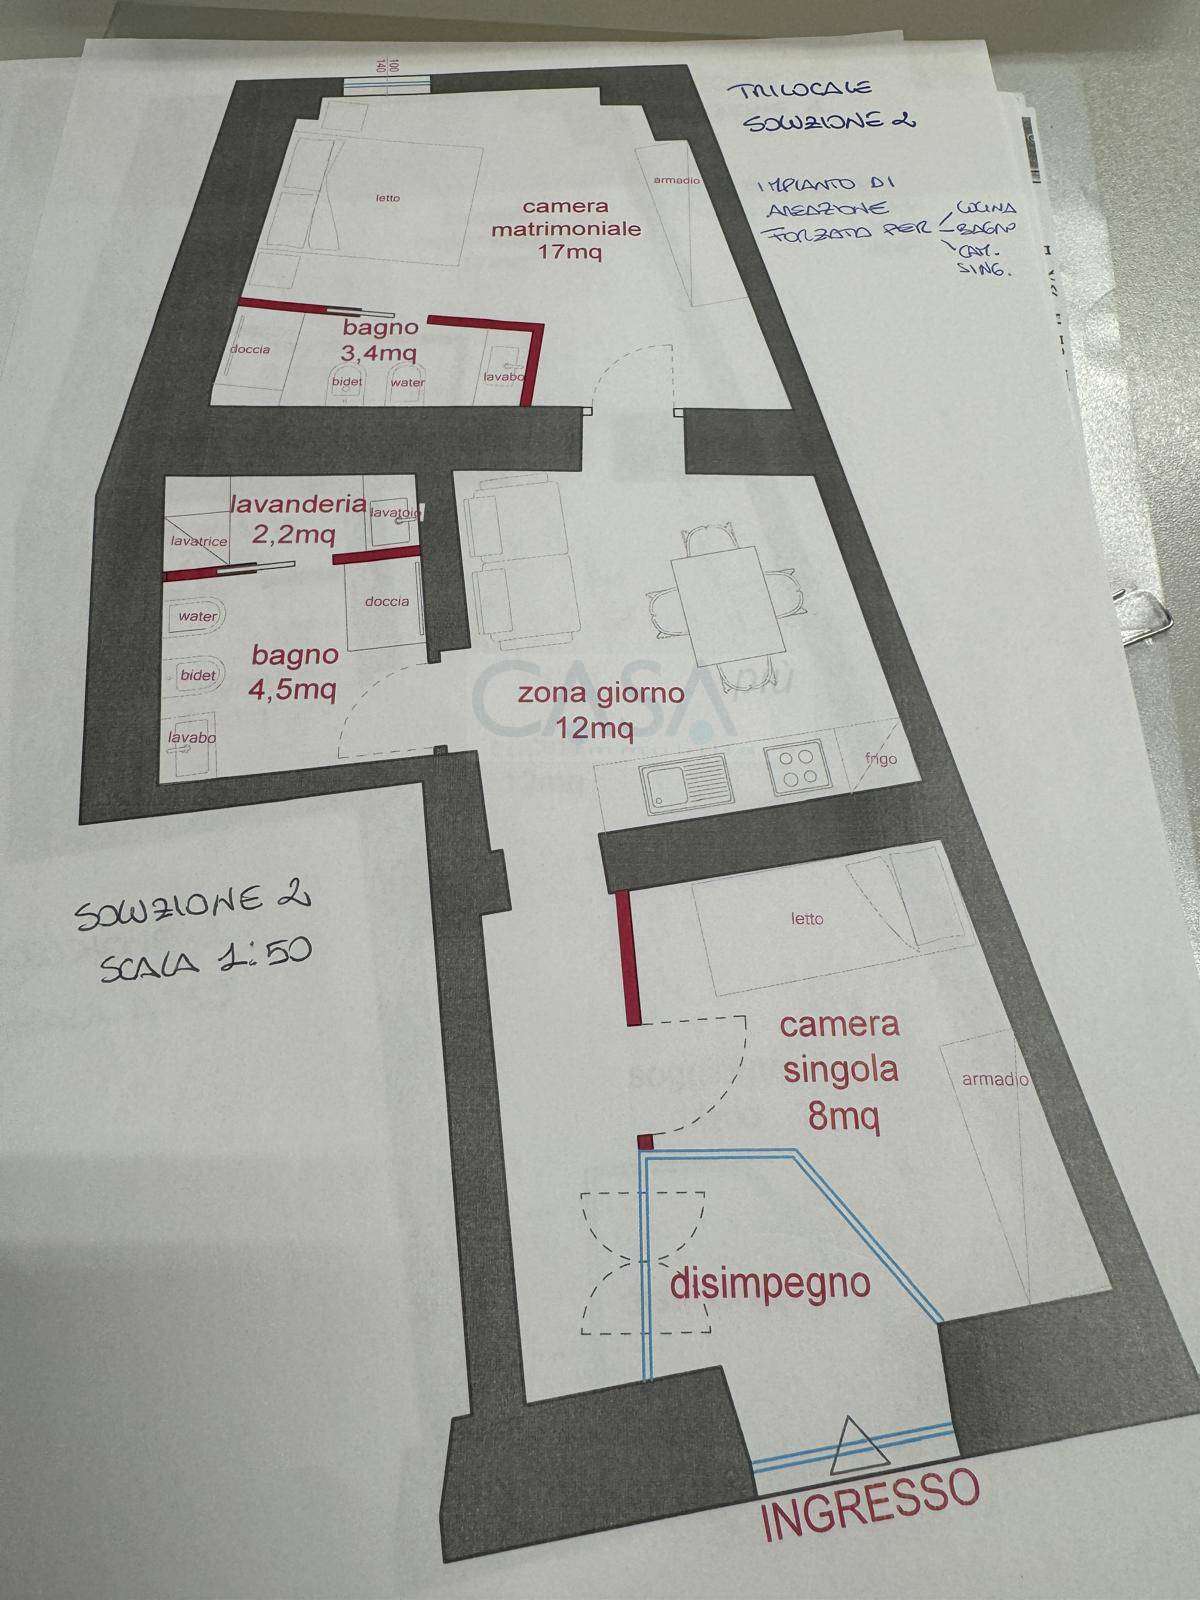 100
140
TRILOCALE
SOLUZIONE 2
IMPIANTO DI
AREAZIONE
FORZATA PER
CUCINA
BAGNO
CAM.
SING.
letto
armadio
camera
matrimoniale
17mq
bagno
3,4mq
doccia
bidet
water
lavabo
lavanderia
2,2mq
lavatoio
lavatrice
doccia
water
bagno
4,5mq
bidet
lavabo
CASA più
zona giorno
12mq
frigo
SOLUZIONE 2
SCALA 1:50
letto
camera
singola
8mq
armadio
disimpegno
INGRESSO